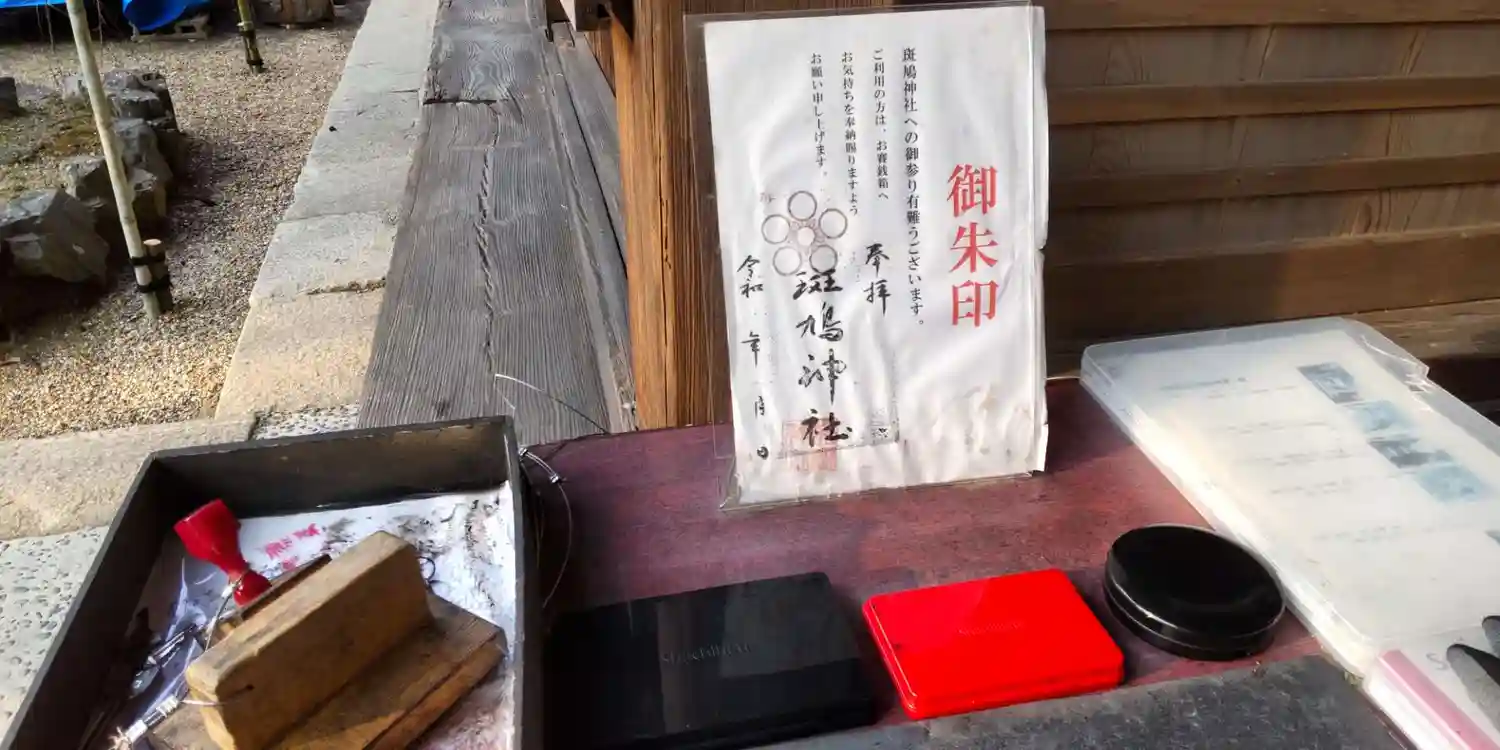 御朱印
斑鳩神社への御参り有難うございます。
ご利用の方は、お賽銭箱へ
お気持ちを奉納賜りますよう
お願い申し上げます。
奉拝
斑鳩神社
令和 年 月 日